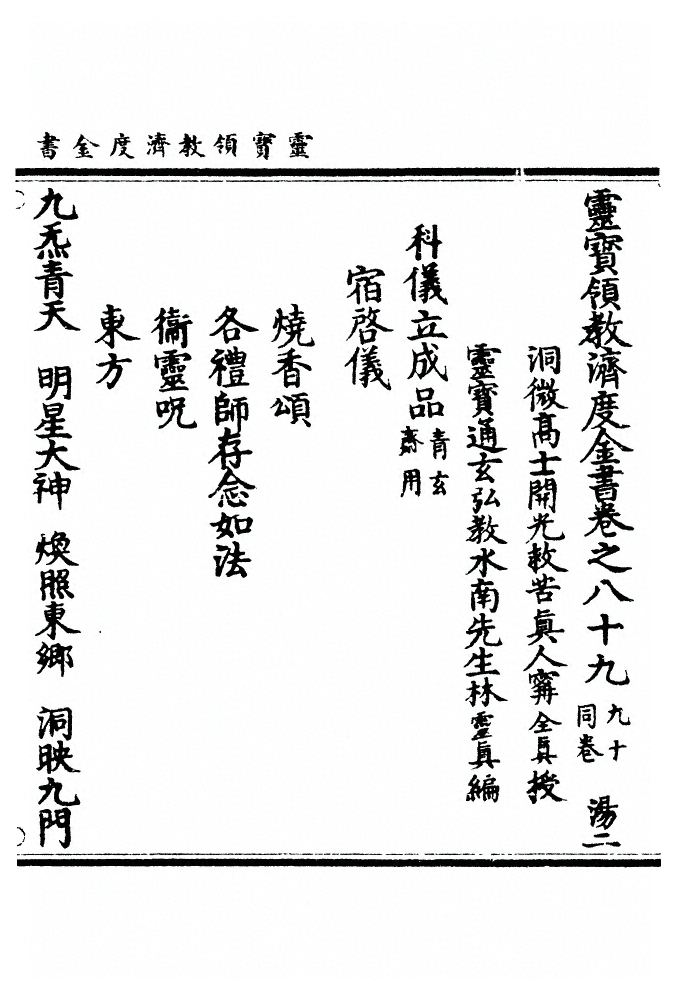 靈寳領教濟度金書
靈寳領教濟度金書卷之八十九 九十同卷 湯二
洞微高士開光救苦眞人寗全眞授
靈寳通玄弘教水南先生林靈眞編
科儀立成品 青玄齋用
宿啓儀
燒香頌
各禮師存念如法
衞靈呪
東方
九炁青天 明星大神 煥照東鄉 洞映九門